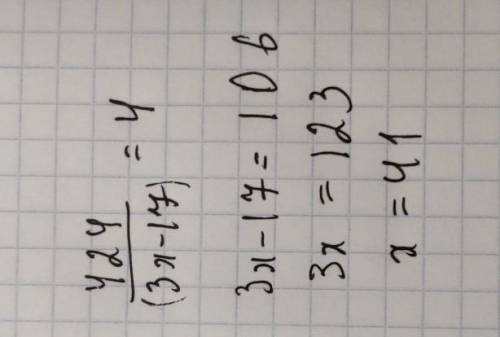 424/(3x-17) = 4
3x-17=106
3x = 123
x = 41